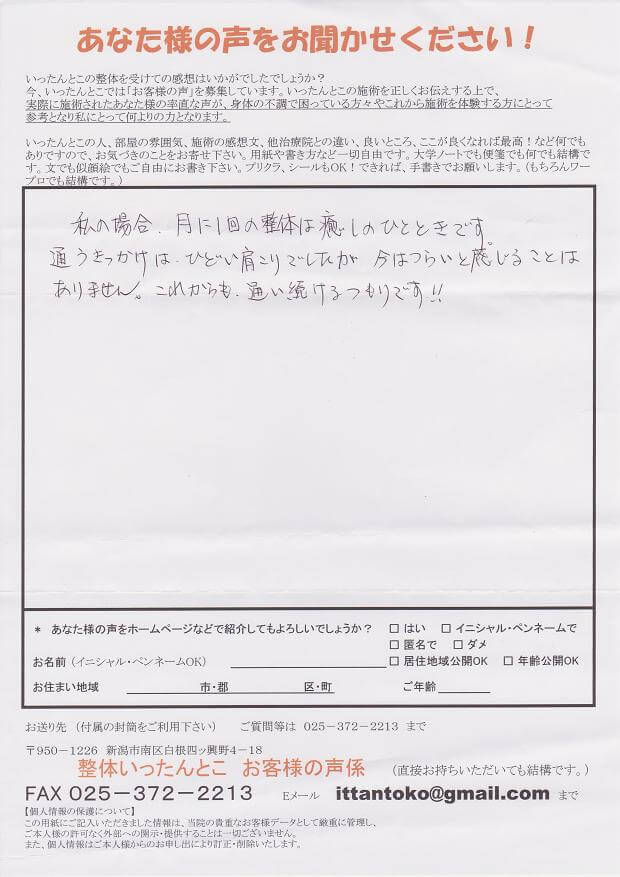 あなた様の声をお聞かせください！
いったんとこの整体を受けての感想はいかがでしたでしょうか？
今、いったんとこでは「お客様の声」を募集しています。いったんとこの施術を正しくお伝えする上で、
実際に施術されたあなた様の率直な声が、身体の不調で困っている方々やこれから施術を体験する方にとって
参考となり私にとって何よりの力となります。
いったんとこの人、部屋の雰囲気、施術の感想文、他治療院との違い、良いところ、ここが良くなれば最高！など何でも
ありですので、お気づきのことをお寄せ下さい。用紙や書き方など一切自由です。大学ノートでも便箋でも何でも結構で
す。文でも似顔絵でもご自由にお書き下さい。プリクラ、シールもOK！できれば、手書きでお願いします。（もちろんワー
プロでも結構です。）
私の場合、月に1回の整体は癒しのひとときです。
通うきっかけは、ひどい肩こりでしたが 今はつらいと感じることは
ありません。これからも、通い続けるつもりです!!
* あなた様の声をホームページなどで紹介してもよろしいでしょうか？ □ はい □ イニシャル・ペンネームで
□ 匿名で □ ダメ
お名前（イニシャル・ペンネームOK） □ 居住地域公開OK □ 年齢公開OK
お住まい地域 市・郡 区・町 ご年齢
お送り先 （付属の封筒をご利用下さい） ご質問等は 025－372－2213 まで
〒950－1226 新潟市南区白根四ッ興野4－18
整体いったんとこ お客様の声係 （直接お持ちいただいても結構です。）
FAX 025－372－2213 Eメール ittantoko@gmail.com まで
【個人情報の保護について】
この用紙にご記入いただきました情報は、当院の貴重なお客様データとして厳重に管理し、
ご本人様の許可なく外部への開示・提供することは一切ございません。
また、個人情報はご本人様からのお申し出により訂正・削除いたします。